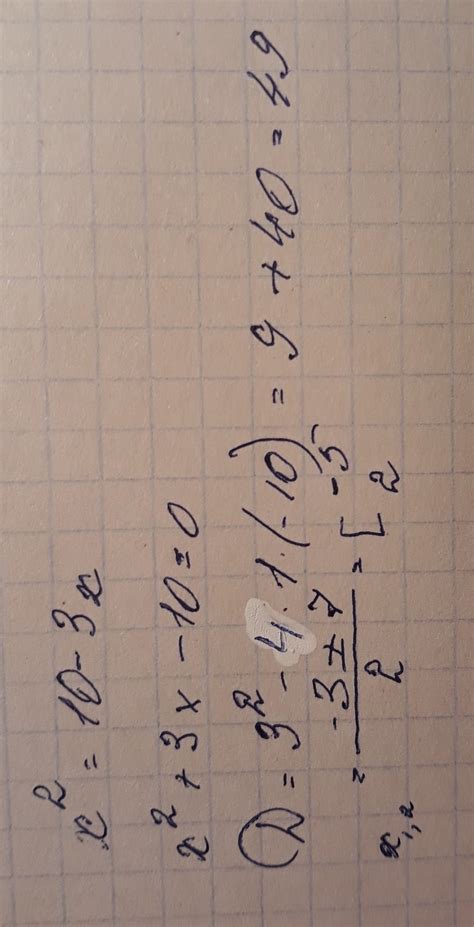 x² = 10 - 3x
x² + 3x - 10 = 0
D = 3² - 4 · 1 · (-10) = 9 + 40 = 49
x₁,₂ = (-3 ± 7)/2 = [ -5 2